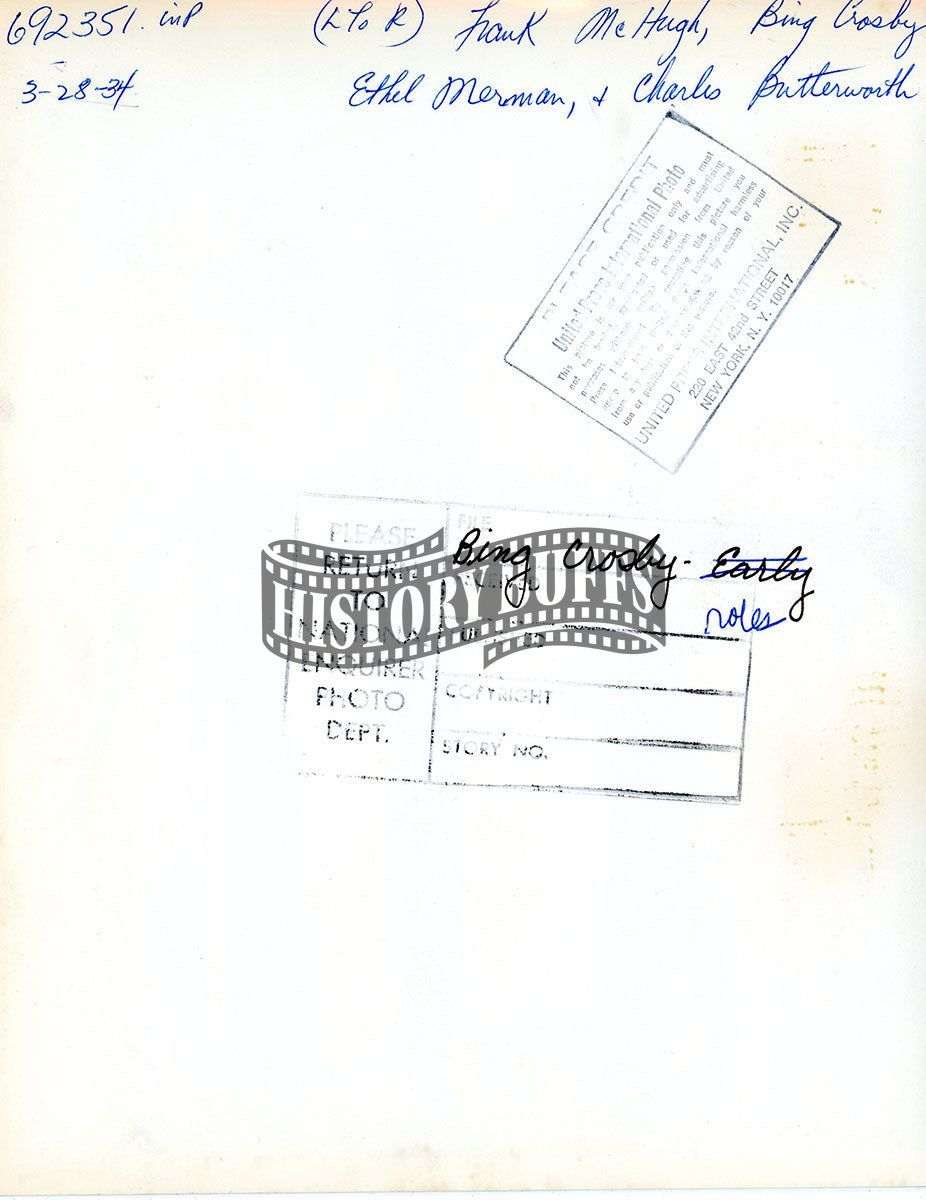 692351. inp (L To R) Frank McHugh, Bing Crosby
3-28-34 Ethel Merman, + Charles Butterworth
PLEASE CREDIT
United Press International Photo
This picture is for publication only and must
not be used for advertising
purposes without permission from United
Press International this picture you
harmless
from by reason of your
use or publication of this picture.
UNITED PRESS INTERNATIONAL, INC.
220 EAST 42nd STREET
NEW YORK, N. Y. 10017
PLEASE
RETURN
TO
NATIONAL
ENQUIRER
PHOTO
DEPT.
FILE
Bing Crosby - Early
roles
COPYRIGHT
STORY NO.
HISTORY BUFFS